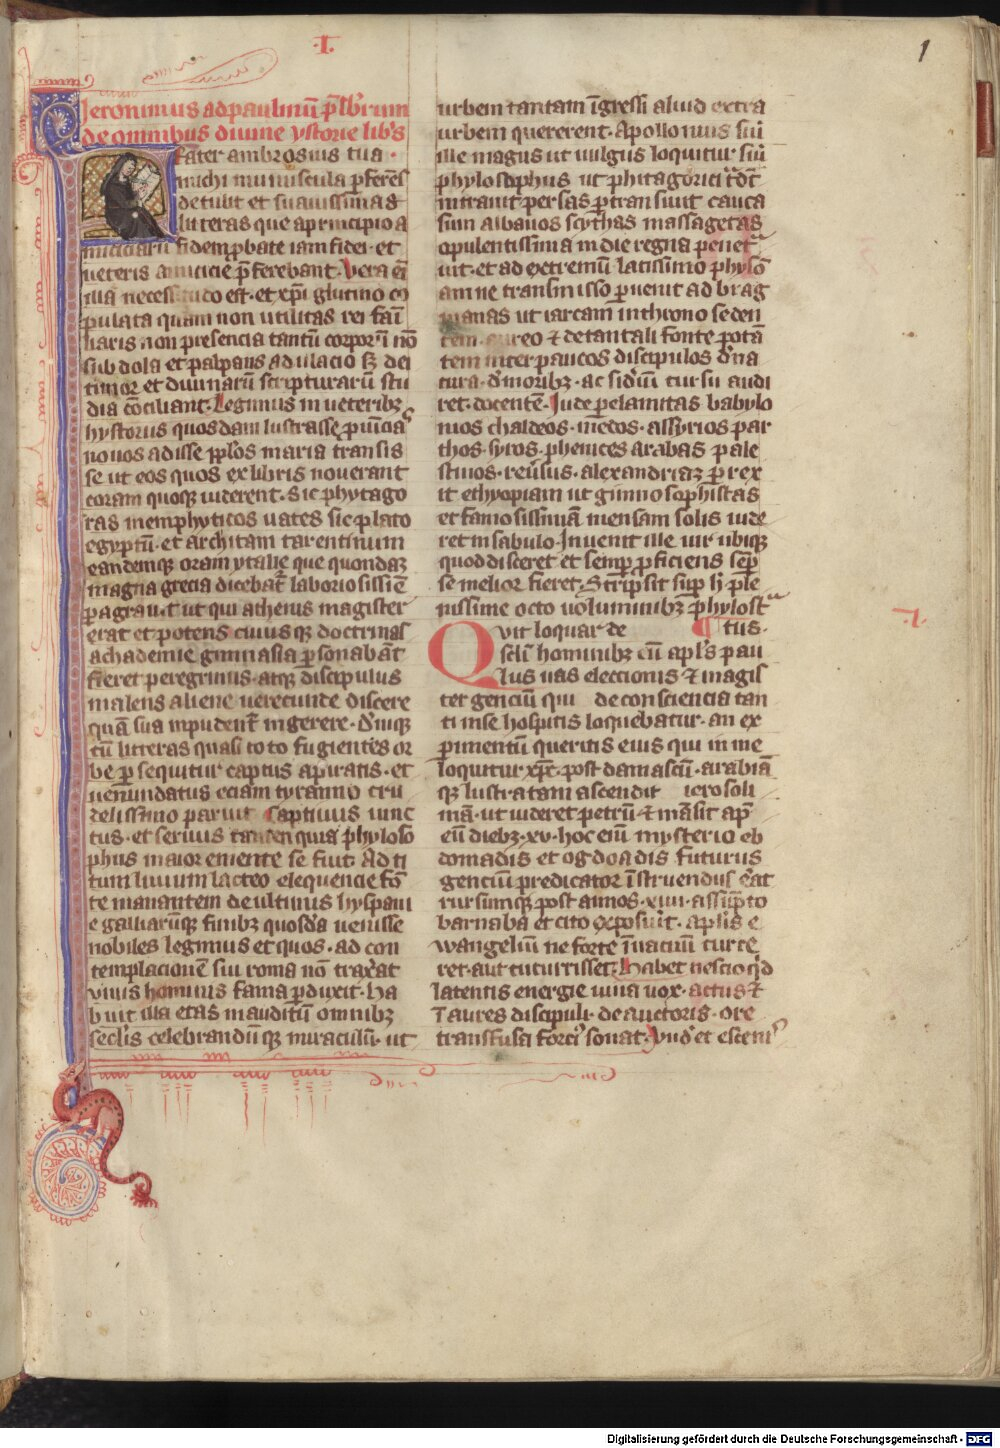 .I.
1
Ieronimus ad paulinū p̄sb̄rum
de omnibus diuine ystorie lib̄s
Frater ambrosius tua
michi munuscula p̄ferēs
detulit et suauissimas
litteras que a principio a
miciciarū fidem probate iam fidei et
ueteris amicicie p̄ferebant. Vera eī
illa necessitudo est. et xp̄i glutino co
pulata quam non utilitas rei fāi
liaris non presencia tantū corporū nō
subdola et palpans adulacio sʒ dei
timor et diuinarū scripturarū stu
dia cōciliant. Legimus in ueteribʒ
hystoriis quosdam lustrasse prouīcias
nouos adisse pp̄los maria transis
se ut eos quos ex libris nouerant
coram quoqʒ uiderent. Sic phytago
ras memphyticos uates sic plato
egyptū. et architam tarentinum
eandemqʒ oram ytalie que quondaʒ
magna grecia dicebat̄ laboriosissie
pagrauit ut qui athenis magister
erat et potens cuiusqʒ doctrinas
achademie gimnasia p̄sonabāt
fieret peregrinus atqʒ discipulus
malens aliena uerecunde discere
quā sua inpudent̄ ingerere. Dēniqʒ
cū litteras quasi toto fugientes or
be p̄sequitur captus a piratis. et
uenundatus eciam tyranno cru
delissimo paruit captiuus uinc
tus. et seruus tamen quia phyloso
phus maior emente se fuit Ad ti
tum liuium lacteo eloquencie fō
te manantem de ultimis hyspani
e galliarūqʒ finibʒ quosdā uenisse
nobiles legimus et quos ad con
templacionē sui roma nō traxerat
vnius hominis fama p̄duxit. Ha
buit illa etas inauditū omnibʒ
seclis celebrandūqʒ miraculū. ut
urbem tantam īgressi aliud extra
urbem quererent. Apollonius siū
ille magus ut uulgus loquitur siū
phylosophus ut phitagorici t̄dt̄
intrauit persas p̄transiuit cauca
sum albanos scythas massagetas
opulentissima indie regna penet̄ͣ
uit. et ad extremū latissimo physō
amne transmisso p̄uenit ad brag
manas ut iarcam in throno seden
tem aureo & de tantali fonte potā
tem inter paucos discipulos de na
tura. de moribʒ. ac siderū cursu audi
ret docentē. Inde p̄ elamitas babylo
nios chaldeos. medos. assyrios par
thos. syros. phenices arabas pale
stinos. reūsus. alexandriaʒ prex
it ethyopiam ut gimnosophistas
et famosissimā mensam solis uide
ret in sabulo. Inuenit ille uir ubiqʒ
quod disceret et semp̄ p̄ficiens semp̄
se melior fieret. Scripsit sup̄ h̄ ple
nissime octo uoluminibʒ phylostͣ
Qvit loquar de ¶ tus.
seculi hominibʒ cū apl̄s pau
lus uas eleccionis & magis
ter genciū qui de consciencia tan
ti in se hospitis loquebatur. an ex
perimentū queritis eius qui in me
loquitur xp̄c. post damascū. arabiā
qʒ lustratam ascendit ierosoli
mā. ut uideret petrū & māsit ap̄
eū diebʒ. xv. hoc enī mysterio eb
domadis et ogdoadis futurus
genciū predicator īstruendus erat
rursumqʒ post annos. xiiii. assūpto
barnaba et tito exposuit. aplis e
wangeliū ne forte īuacuū curre
ret. aut cucurrisset. Habet nescio q̄d
latentis energie uiua uox. actus &
ī aures discipuli. de auctoris. ore
transfusa forcius sonat. Vnde et escenī
.I.
Digitalisierung gefördert durch die Deutsche Forschungsgemeinschaft - DFG